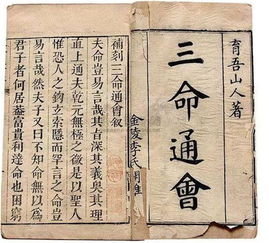 育吾山人著
三命通會
金陵李氏
補刻三命通會叙
夫命豈易言哉其旨深其義奧其理
直上通夫乾元無極之後是以聖人
惟恐人之玄索隱而罕言之命豈
易言哉然夫子又曰不知命無以爲
君子者何居葢富貴利達命也困窮